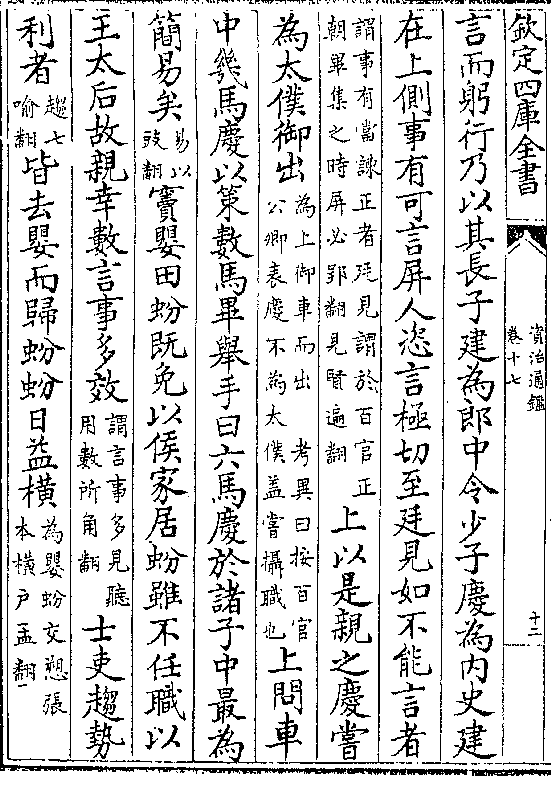 欽定四庫全書
資治通鑑
卷十七
十二
言而躬行乃以其長子建為郎中令少子慶為内史建
在上側事有可言屏人恣言極切至廷見如不能言者
謂事有當諫正者廷見謂於百官正
朝畢集之時屏必郢翻見賢遍翻
上以是親之慶嘗
為太僕御出
為上御車而出 考異曰按百官
公卿表慶不為太僕盖嘗攝職也
上問車
中幾馬慶以策數馬畢舉手曰六馬慶於諸子中最為
簡易矣
易以
豉翻
竇嬰田蚡既免以侯家居蚡雖不任職以
王太后故親幸數言事多效
謂言事多見聽
用數所角翻
士吏趨勢
利者
趨七
喻翻
皆去嬰而歸蚡蚡日益横
為嬰蚡交愬張
本横戶孟翻